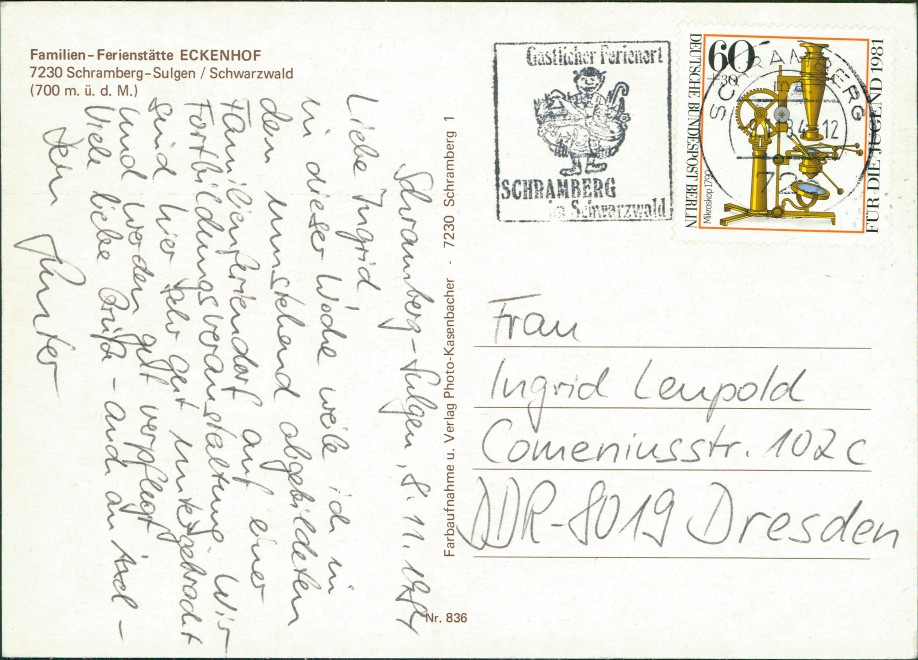 Familien-Ferienstätte ECKENHOF
7230 Schramberg-Sulgen / Schwarzwald
(700 m. ü. d. M.)
Schramberg-Sulgen, 8.11.1984
Liebe Ingrid,
in dieser Woche weile ich in
den umstehend abgebildeten
Familienferiendorf auf einer
Fortbildungsveranstaltung. Wir
sind hier sehr gut untergebracht
und werden gut verpflegt.
Viele liebe Grüße - auch an Axel -
Dein
Farbaufnahme u. Verlag Photo-Kasenbacher - 7230 Schramberg 1
Nr. 836
Gastlicher Ferienort
SCHRAMBERG
im Schwarzwald
SCHRAMBERG
60
+30
DEUTSCHE BUNDESPOST BERLIN
Mikroskop 1790
FÜR DIE JUGEND 1981
Frau
Ingrid Leupold
Comeniusstr. 102c
DDR-8019 Dresden